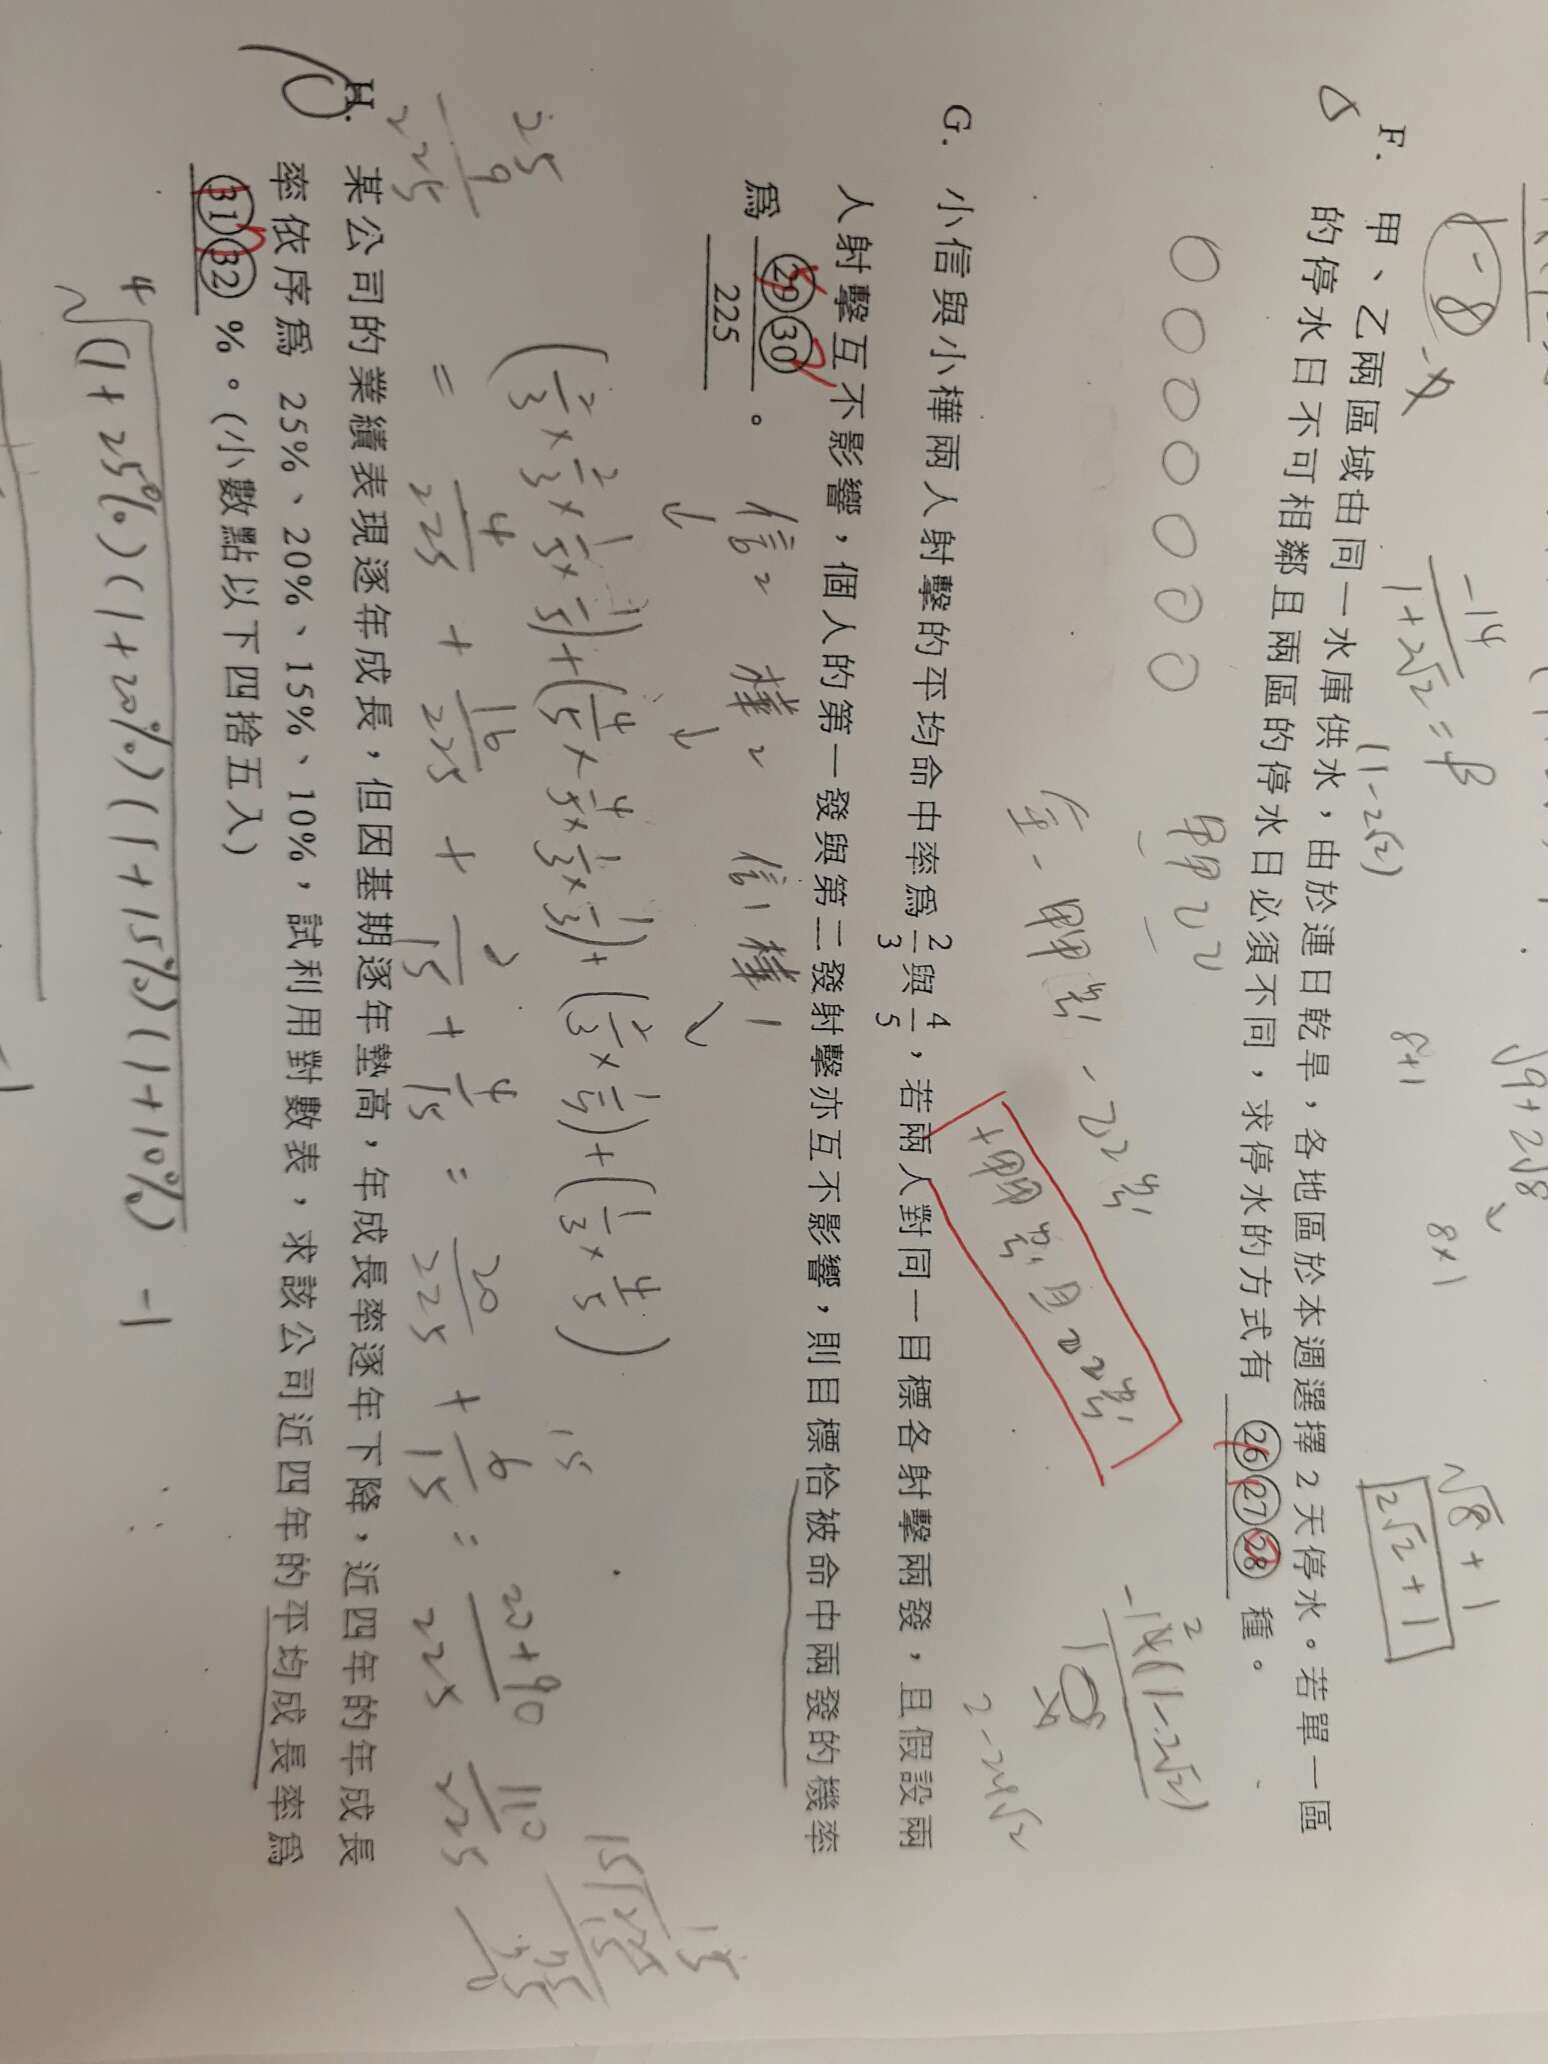 -8
-14
1+2√2
=β
(1-2√2)
√9+2√8
8+1
8×1
√8+1
2√2+1
F. 甲、乙兩區域由同一水庫供水，由於連日乾旱，各地區於本週選擇2天停水。若單一區
的停水日不可相鄰且兩區的停水日必須不同，求停水的方式有 ㉖㉗㉘ 種。
0000000
甲甲乙乙
全-甲甲鄰-乙乙鄰
+甲甲鄰且乙乙鄰
2-24√2
G. 小信與小樺兩人射擊的平均命中率爲 2/3 與 4/5，若兩人對同一目標各射擊兩發，且假設兩
人射擊互不影響，個人的第一發與第二發射擊亦互不影響，則目標恰被命中兩發的機率
爲 ㉙㉚/225 。
信2 樺2 信1樺1
(2/3×2/3×1/5×1/5)+(4/5×4/5×1/3×1/3)+(2/3×1/5)+(1/3×4/5)
= 4/225 + 16/225 + 2/15 + 4/15 = 20/225 + 6/15 = 20+90/225 110/225
H. 某公司的業績表現逐年成長，但因基期逐年墊高，年成長率逐年下降，近四年的年成長
率依序爲 25%、20%、15%、10%，試利用對數表，求該公司近四年的平均成長率爲
㉛㉜ %。(小數點以下四捨五入)
⁴√(1+25%)(1+20%)(1+15%)(1+10%) -1